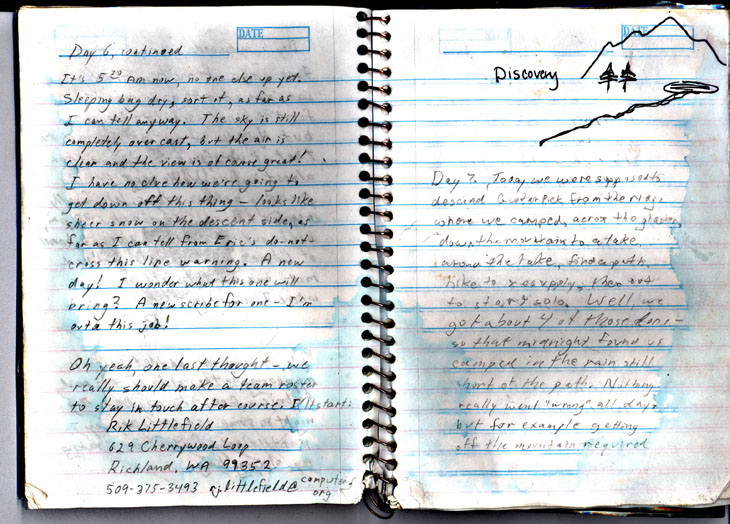 DATE
Day 6, continued
It's 5 20 Am now, no one else up yet.
Sleeping bag dry, sort of, as far as
I can tell anyway. The sky is still
completely overcast, but the air is
clear and the view is of course great!
I have no clue how we're going to
get down off this thing - looks like
sheer snow on the descent side, as
far as I can tell from Eric's do-not-
cross this line warning. A new
day! I wonder what this one will
bring? A new scribe for one - I'm
outa this job!
Oh yeah, one last thought - we
really should make a team roster
to stay in touch after course. I'll start:
Rik Littlefield
629 Cherrywood Loop
Richland, WA 99352
509-375-3493 rj.littlefield@computer.org
DATE
Discovery
Day 7. Today we were supposed to
descend Peak from the ridge
where we camped, across the glacier,
down the mountain to a lake,
around the lake, find a path,
hike to resupply, then out
to start solo. Well, we
got about 4 of those done -
so that midnight found us
camped in the rain still
short of the path. Nothing
really went "wrong" all day,
but for example getting
off the mountain required